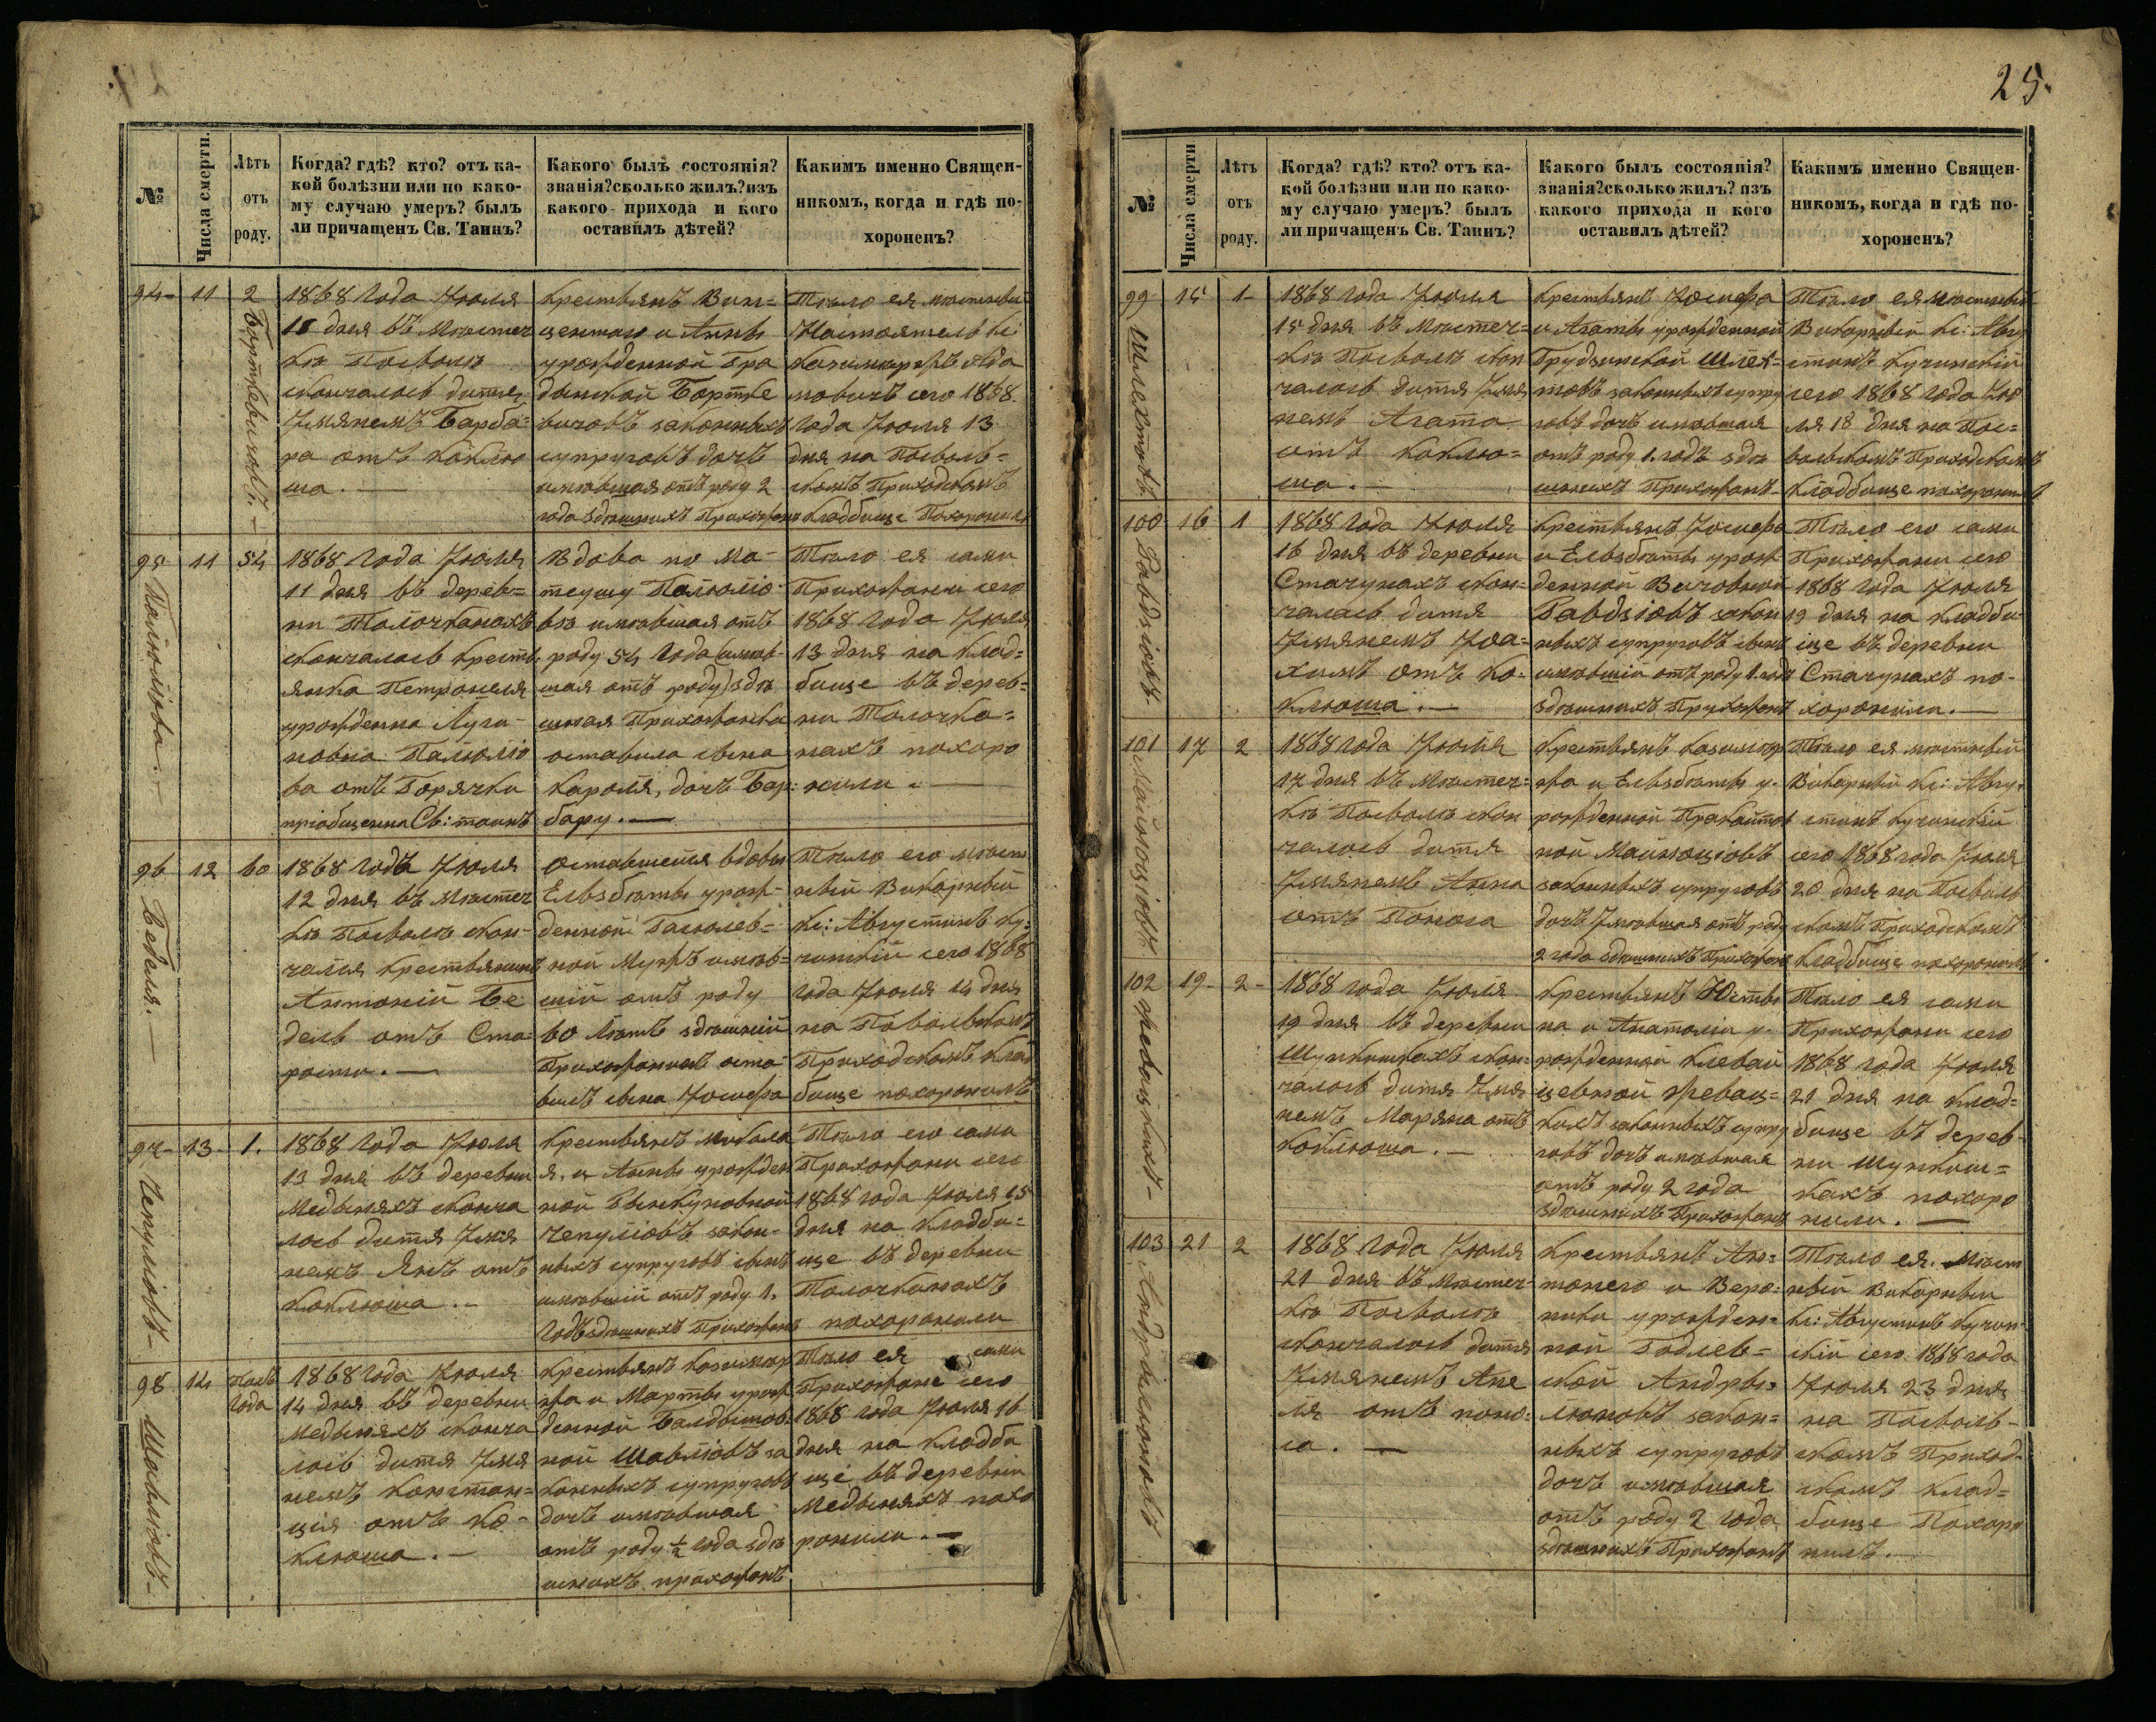 25.
№
Числа смерти.
Лѣтъ
отъ
роду.
Когда? гдѣ? кто? отъ ка-
кой болѣзни или по како-
му случаю умеръ? былъ
ли причащенъ Св. Таинъ?
Какого былъ состоянія?
званія? сколько жилъ? изъ
какого прихода и кого
оставилъ дѣтей?
Какимъ именно Священ-
никомъ, когда и гдѣ по-
хороненъ?
94
11
2
Борткевичовъ.
1868 Года Іюля
11 дня въ мѣстеч
кѣ Посволѣ
скончалось дитя
Имянемъ Барба=
ра отъ коклю
ша.
Крестьянъ Вин=
центаго и Анны
урожденной Гра
Бортке
вичовъ законныхъ
супруговъ дочь
имѣвшая отъ роду 2
года здѣшнихъ Прихожанъ
Тѣло ея мѣстный
Настоятель Кс:
сего 1868
Года Іюля 13
дня на Посволь=
скомъ Приходскомъ
Кладбище Похоронилъ
95
11
54
1868 Года Іюля
11 дня въ дерев=
ни Талочканахъ
скончалось Кресть
янка Петронеля
урожденна
отъ Горячки
пріобщенна Св: таинъ
Вдова по Ма-
теушу
имѣвшая отъ
роду 54 Года (имѣв-
шая отъ роду) здѣ
шная Прихожанка
оставила сына
Кароля, дочь Бар:
бару.
Тѣло ея сами
Прихожани сего
1868 Года Іюля
13 дня на Клад=
бище въ дерев=
ни Талочка=
нахъ похоро
нили.
96
12
60
Беделя.
1868 Года Іюля
12 дня въ мѣстеч
кѣ Посволѣ скон-
чался крестьянинъ
Антоній Бе
дель отъ Ста=
рости.
Оставшейся вдовы
Ельзбѣты урож-
денной
ной Мужъ имѣв=
шій отъ роду
60 Лѣтъ здѣшній
Прихожанинъ оста-
вилъ сына Іосифа
Тѣло его мѣст
ный Викарный
Кс: Августинъ Ку=
чинскій сего 1868
года Іюля 14 дня
на Посвольскомъ
Приходскомъ Клад
бище похоронилъ
97
13
1.
Чепулювъ
1868 Года Іюля
13 дня въ деревни
Медыняхъ сконча
лось дитя Имя
немъ Янъ отъ
Коклюша.
Крестьянъ Микола
я, и Анны урожден
ной
Чепулювъ закон-
ныхъ супруговъ сынъ
имѣвшій отъ роду 1.
Годъ здѣшнихъ Прихожанъ
Тѣло его сами
Прихожани сего
1868 года Іюля 15
дня на Кладби=
ще въ деревни
Талочканахъ
похоронили
98
14
Полъ
Года
Шавлювъ
1868 Года Іюля
14 дня въ деревни
Медыняхъ сконча
лось дитя Имя
немъ Констан=
ція отъ Ко-
клюша.
Крестьянъ Казимир
жа и Марты урож
денной Балдышов
ной Шавлювъ за
конныхъ супруговъ
дочь имѣвшая
отъ роду ½ года здѣ
шнихъ прихожанъ
Тѣло ея сами
Прихожане сего
1868 года Іюля 16
дня на Кладби
ще въ деревни
Медыняхъ похо
ронили.
№
Числа смерти
Лѣтъ
отъ
роду.
Когда? гдѣ? кто? отъ ка-
кой болѣзни или по како-
му случаю умеръ? былъ
ли причащенъ Св. Таинъ?
Какого былъ состоянія?
званія? сколько жилъ? изъ
какого прихода и кого
оставилъ дѣтей?
Какимъ именно Священ-
никомъ, когда и гдѣ по-
хороненъ?
99
15
1
Шлехтовъ.
1868 Года Іюля
15 дня въ мѣстеч=
кѣ Посволѣ скон
чалось дитя Имя
немъ Агата
отъ коклю=
ша.
Крестьянъ Іосифа
и Агаты урожденной
Грудзинской Шлех=
товъ законныхъ супру
говъ дочь имѣвшая
отъ роду 1. годъ здѣ
шнихъ Прихожанъ
Тѣло ея мѣстный
Викарный Кс: Авгу
стинъ Кучинскій
сего 1868 года Ію
ля 18 дня на Пос=
вольскомъ Приходскомъ
Кладбище похоронилъ
100
16
1
1868 Года Іюля
16 дня въ деревни
Стачунахъ скон=
чалась дитя
Имянемъ Іоа=
химъ отъ Ко=
клюша.
Крестьянъ Іосифа
и Ельзбѣты урож
денной
закон
ныхъ супруговъ сынъ
имѣвшій отъ роду 1. годъ
здѣшнихъ Прихожанъ
Тѣло его сами
Прихожани сего
1868 года Іюля
19 дня на Кладби-
ще въ деревни
Стачунахъ по-
хоронили.
101
17
2
1868 года Іюля
17 дня въ мѣстеч=
кѣ Посволѣ скон
чалось дитя
Имянемъ Анна
отъ Поноса
Крестьянъ Казимир
жа и Ельзбѣты у-
рожденной
ной
законныхъ супруговъ
дочь Имѣвшая отъ роду
2 года здѣшнихъ Прихожанъ
Тѣло ея мѣстный
Викарный Кс: Авгу-
стинъ Кучинскій
сего 1868 года Іюля
20 дня на Посволь
скомъ Приходскомъ
Кладбище похоронилъ.
102
19
2
1868 года Іюля
19 дня въ деревни
Шункишкахъ скон=
чалось дитя Имя
немъ Маряна отъ
коклюша.
Крестьянъ Юсты
на и Анатоліи у-
рожденной
законныхъ супру
говъ дочь имѣвшая
отъ роду 2 года
здѣшнихъ Прихожанъ
Тѣло ея сами
Прихожани сего
1868 года Іюля
21 дня на Клад=
бище въ дерев-
ни Шункиш=
кахъ похоро
нили.
103
21
2
1868 Года Іюля
21 дня въ мѣстеч-
кѣ Посволѣ
скончалось дитя
Имянемъ Апе
ля отъ поно=
са.
Крестьянъ Ан=
тонего и Веро=
ники урожден=
ной Годлев=
ской Андры=
люновъ закон=
ныхъ супруговъ
дочь имѣвшая
отъ роду 2 года
здѣшнихъ Прихожанъ
Тѣло ея. мѣст
ный Викарный
Кс: Августинъ Кучин
скій сего 1868 года
Іюля 23 дня
на Посволь-
скомъ Приход-
скомъ Клад=
бище Похоро
нилъ.